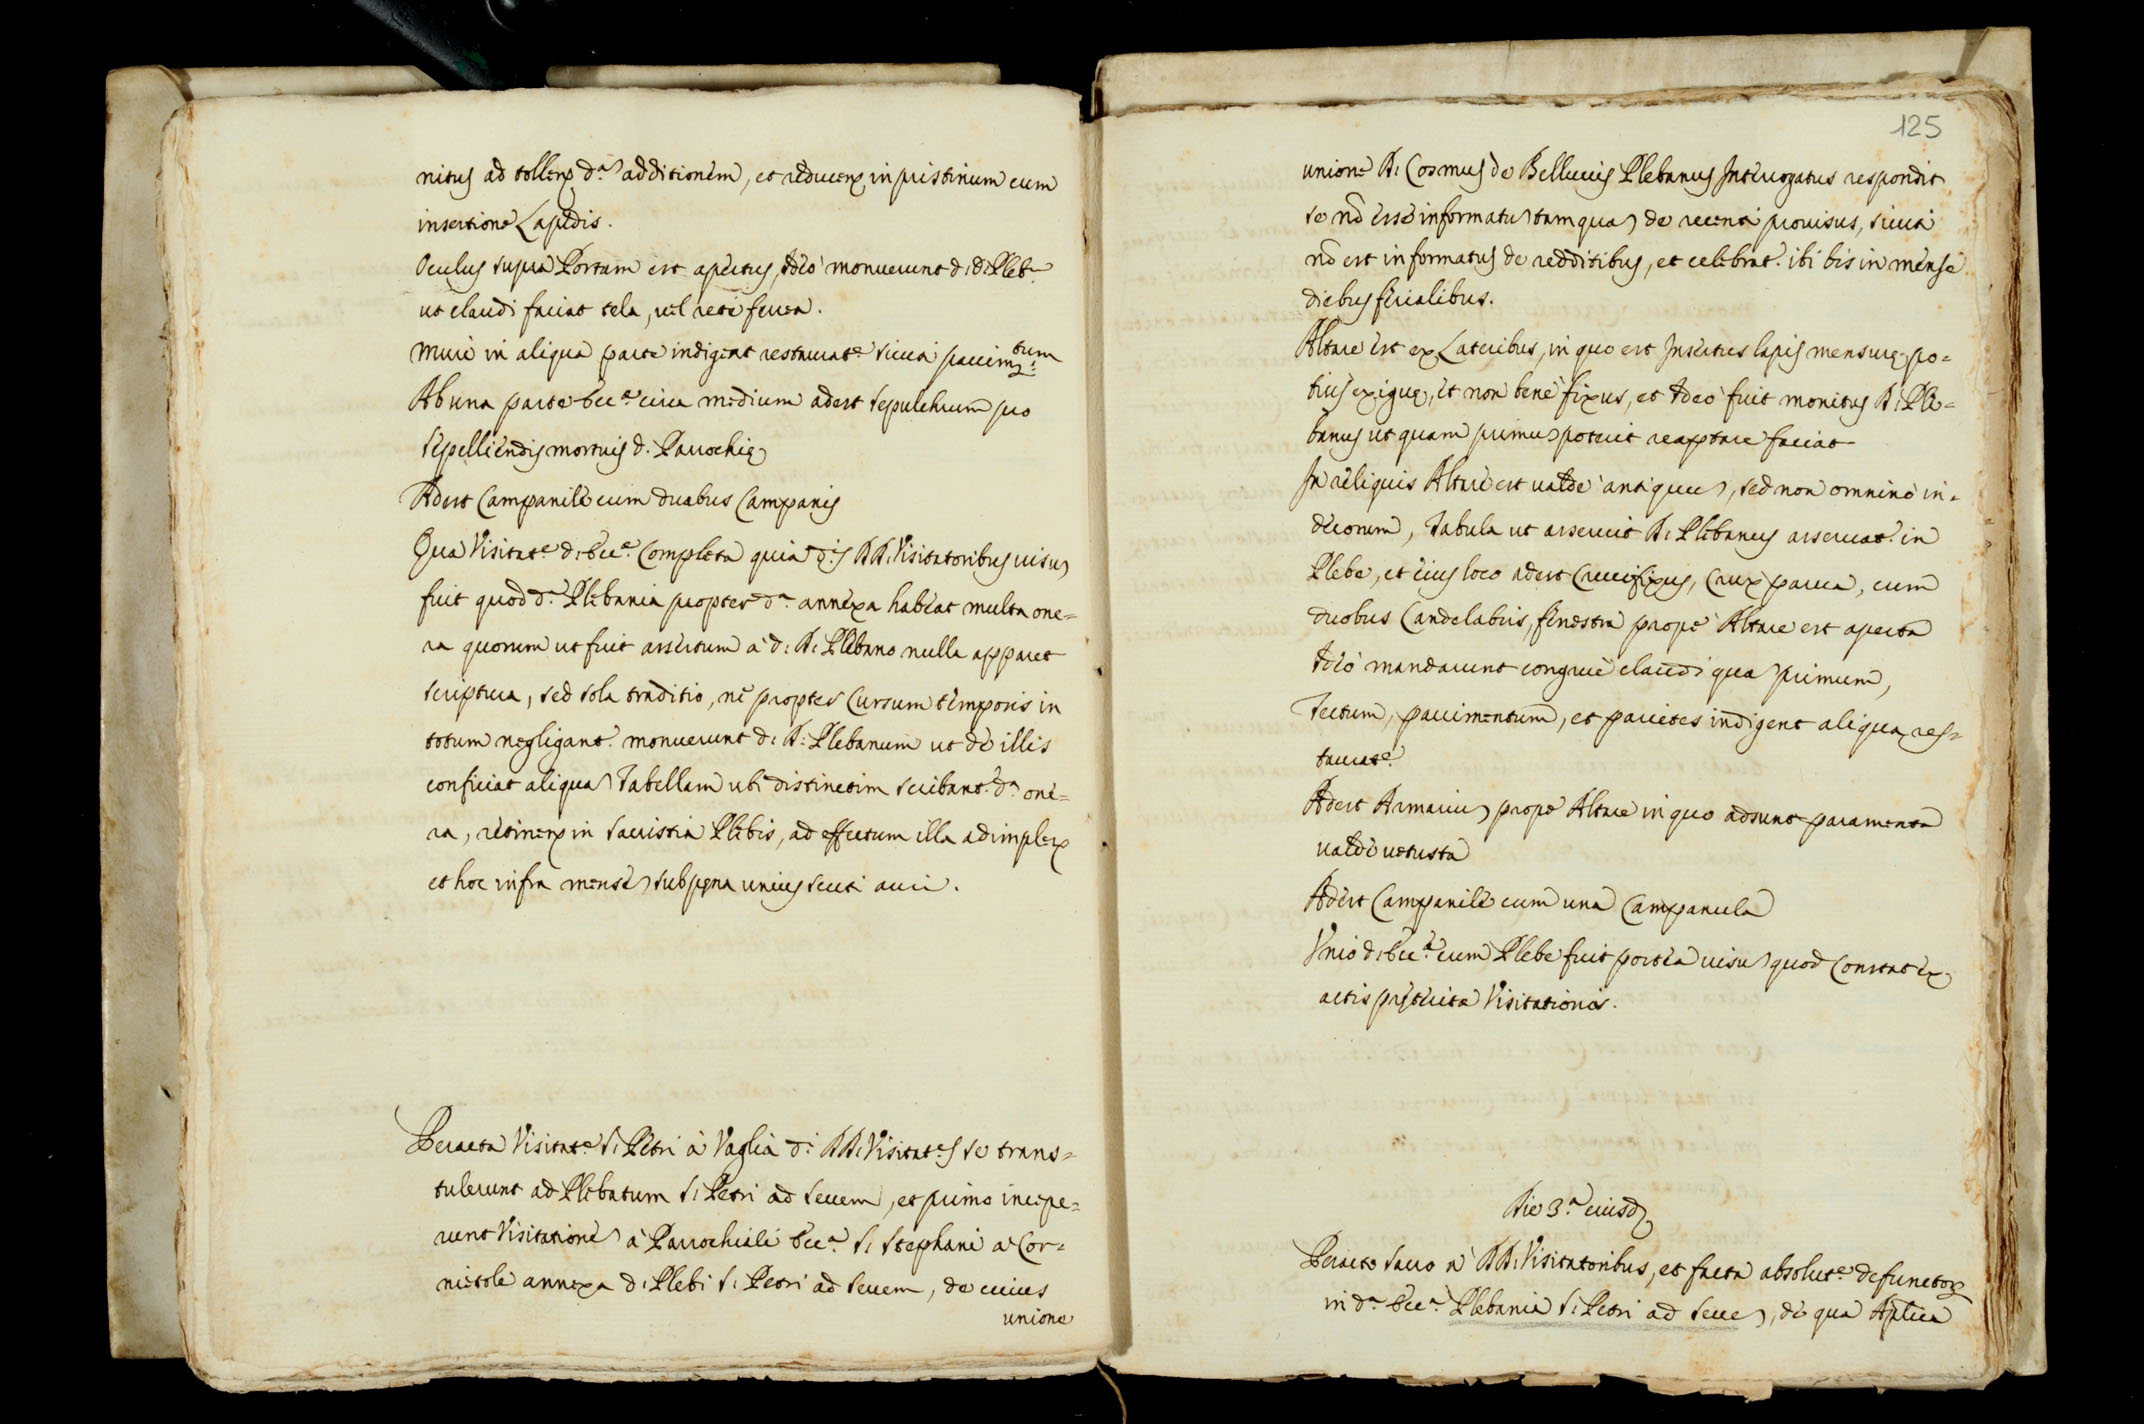 nitus ad tollend. d.ª additionem, et reducend. in pristinum cum
insertione Lapidis.
Oculus supra Portam est apertus, Ideo monuerunt d. D. Pleb.m
ut claudi faciat tela, vel rete ferrea.
Muri in aliqua parte indigent restaurat.e sicuti pavimtum
Ab una parte Ecc.e circa medium adest sepulchrum pro
sepelliendis mortuis d. Parrochię
Adest Campanile cum duabus Campanis
Qua Visitat.e d. Ecc.e Completa quia d.is DD. Visitatoribus visu
fuit quod d.ª Plebania propter d.ª annexa habeat multa one=
ra quorum ut fuit assertum à d. D. Plebano nulla apparet
scriptura, sed sola traditio, ne propter Cursum temporis in
totum negligant. monuerunt d. D. Plebanum ut de illis
conficiat aliqua Tabellam ubi distinctim scribant. d.ª one=
ra, retinend. in Sacristia Plebis, ad effectum illa adimplend.
et hoc infra mense sub pęna unius scuti auri.
Peracta Visitat.e S. Petri à Vaglia d.i DD. Visitat.es se trans=
tulerunt ad Plebatum S. Petri ad Sevem, et primo incepe=
runt Visitatione à Parrochiali Ecc.ª S. Stephani a Cor=
nietole annexa d. Plebi S. Petri ad Sevem, de cuius
unione
125
unione D. Cosmus de Belluciis Plebanus Interrogatus respondit
se nō esse informatu tamqua de recenti provisus, sicuti
nō est informatus de redditibus, et celebrat. ibi bis in mense
diebus ferialibus.
Altare est ex Lateribus, in quo est Insertus lapis mensurę po=
tius exiguę, et non bene fixus, et Ideo fuit monitus D. Ple=
banus ut quam primu poterit reaptare faciat
In reliquis Altare est valde antiquu, sed non omnino in=
decorum, Tabula ut asseruit D. Plebanus asservat. in
Plebe, et eius loco adest Crucifixus, Crux parva, cum
duobus Candelabris, fenestra prope Altare est aperta
Ideo mandarunt congrue claudi qua primum,
Tectum, pavimentum, et parietes indigent aliqua res=
taurat.e
Adest Armariu prope Altare in quo adsunt paramenta
valde vetusta
Adest Campanile cum una Campanula
Unio d. Ecc.e cum Plebe fuit postea visu quod Constat ex
actis pręterita Visitationis.
Die 3.ª eiusd.
Peracto Sacro à DD. Visitatoribus, et facta absolut.e defunctor.
in d.ª Ecc.ª Plebania S. Petri ad Seve, de qua Aplica